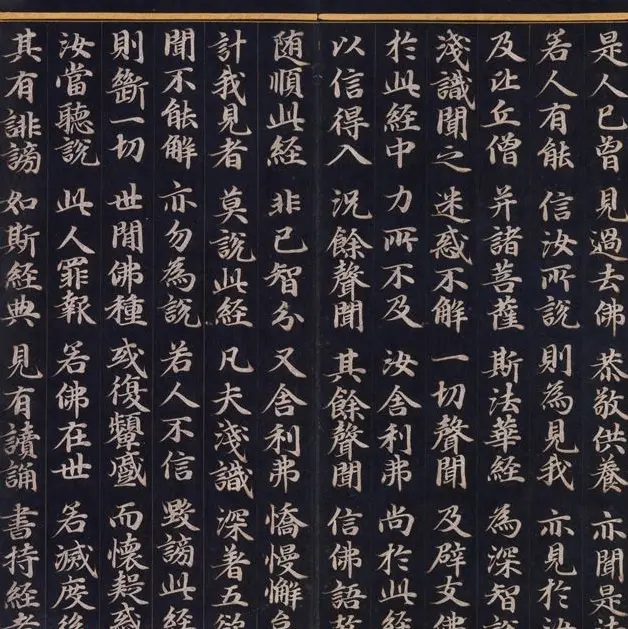 是人已曾 見過去佛 恭敬供養 亦聞是法
若人有能 信汝所說 則為見我 亦見於汝
及比丘僧 并諸菩薩 斯法華經 為深智說
淺識聞之 迷惑不解 一切聲聞 及辟支佛
於此經中 力所不及 汝舍利弗 尚於此經
以信得入 況餘聲聞 其餘聲聞 信佛語故
随順此經 非己智分 又舍利弗 憍慢懈怠
計我見者 莫說此經 凡夫淺識 深著五欲
聞不能解 亦勿為說 若人不信 毀謗此經
則斷一切 世間佛種 或復顰蹙 而懷疑惑
汝當聽說 此人罪報 若佛在世 若滅度後
其有誹謗 如斯經典 見有讀誦 書持經者